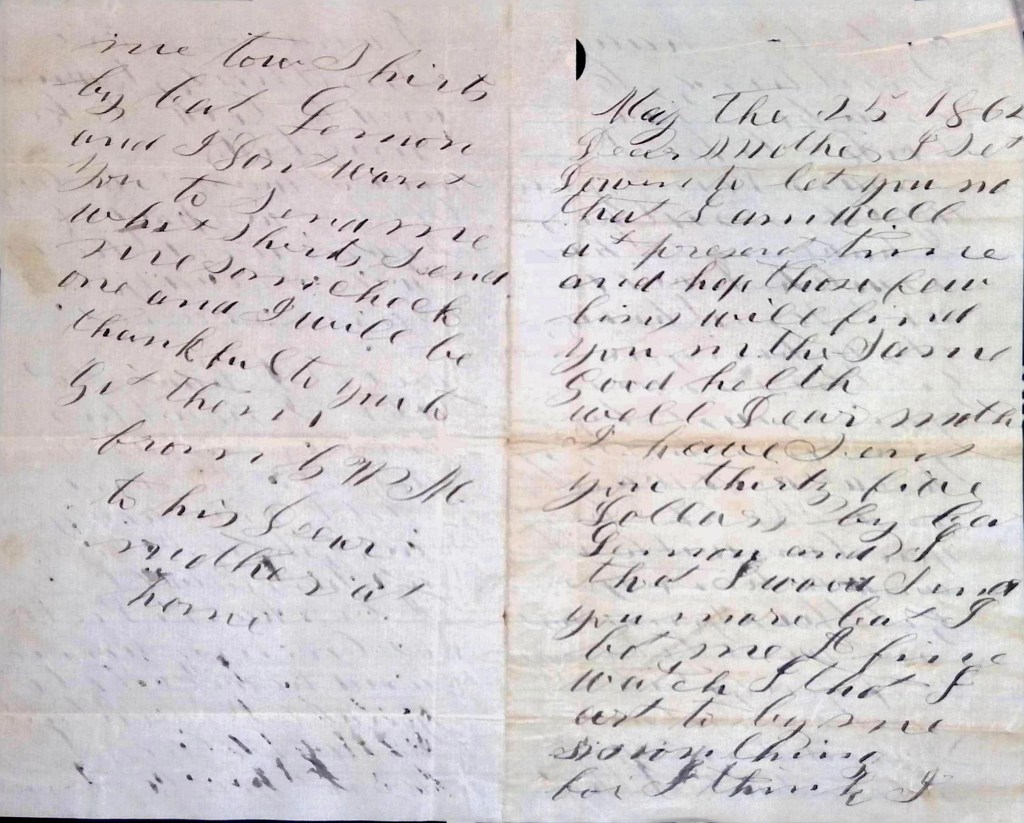 May the 25 1862
Dear Mother I Set
down to let you no
that I am well
at present time
and hop thos few
lins will find
you in the Same
good helth
well Dear moth
I have Sent
you thirty five
Dollars by
and I
thot I wood Send
you more but I
bot me A fine
watch I thot I
ort to by me
somthing
for I think I
me tow Shirts
by
and I Dont want
you to Send me
whit Shirts Send
me som check
one and I will be
thankful to you to
git them
from G W M
to his Dear
mother at
home